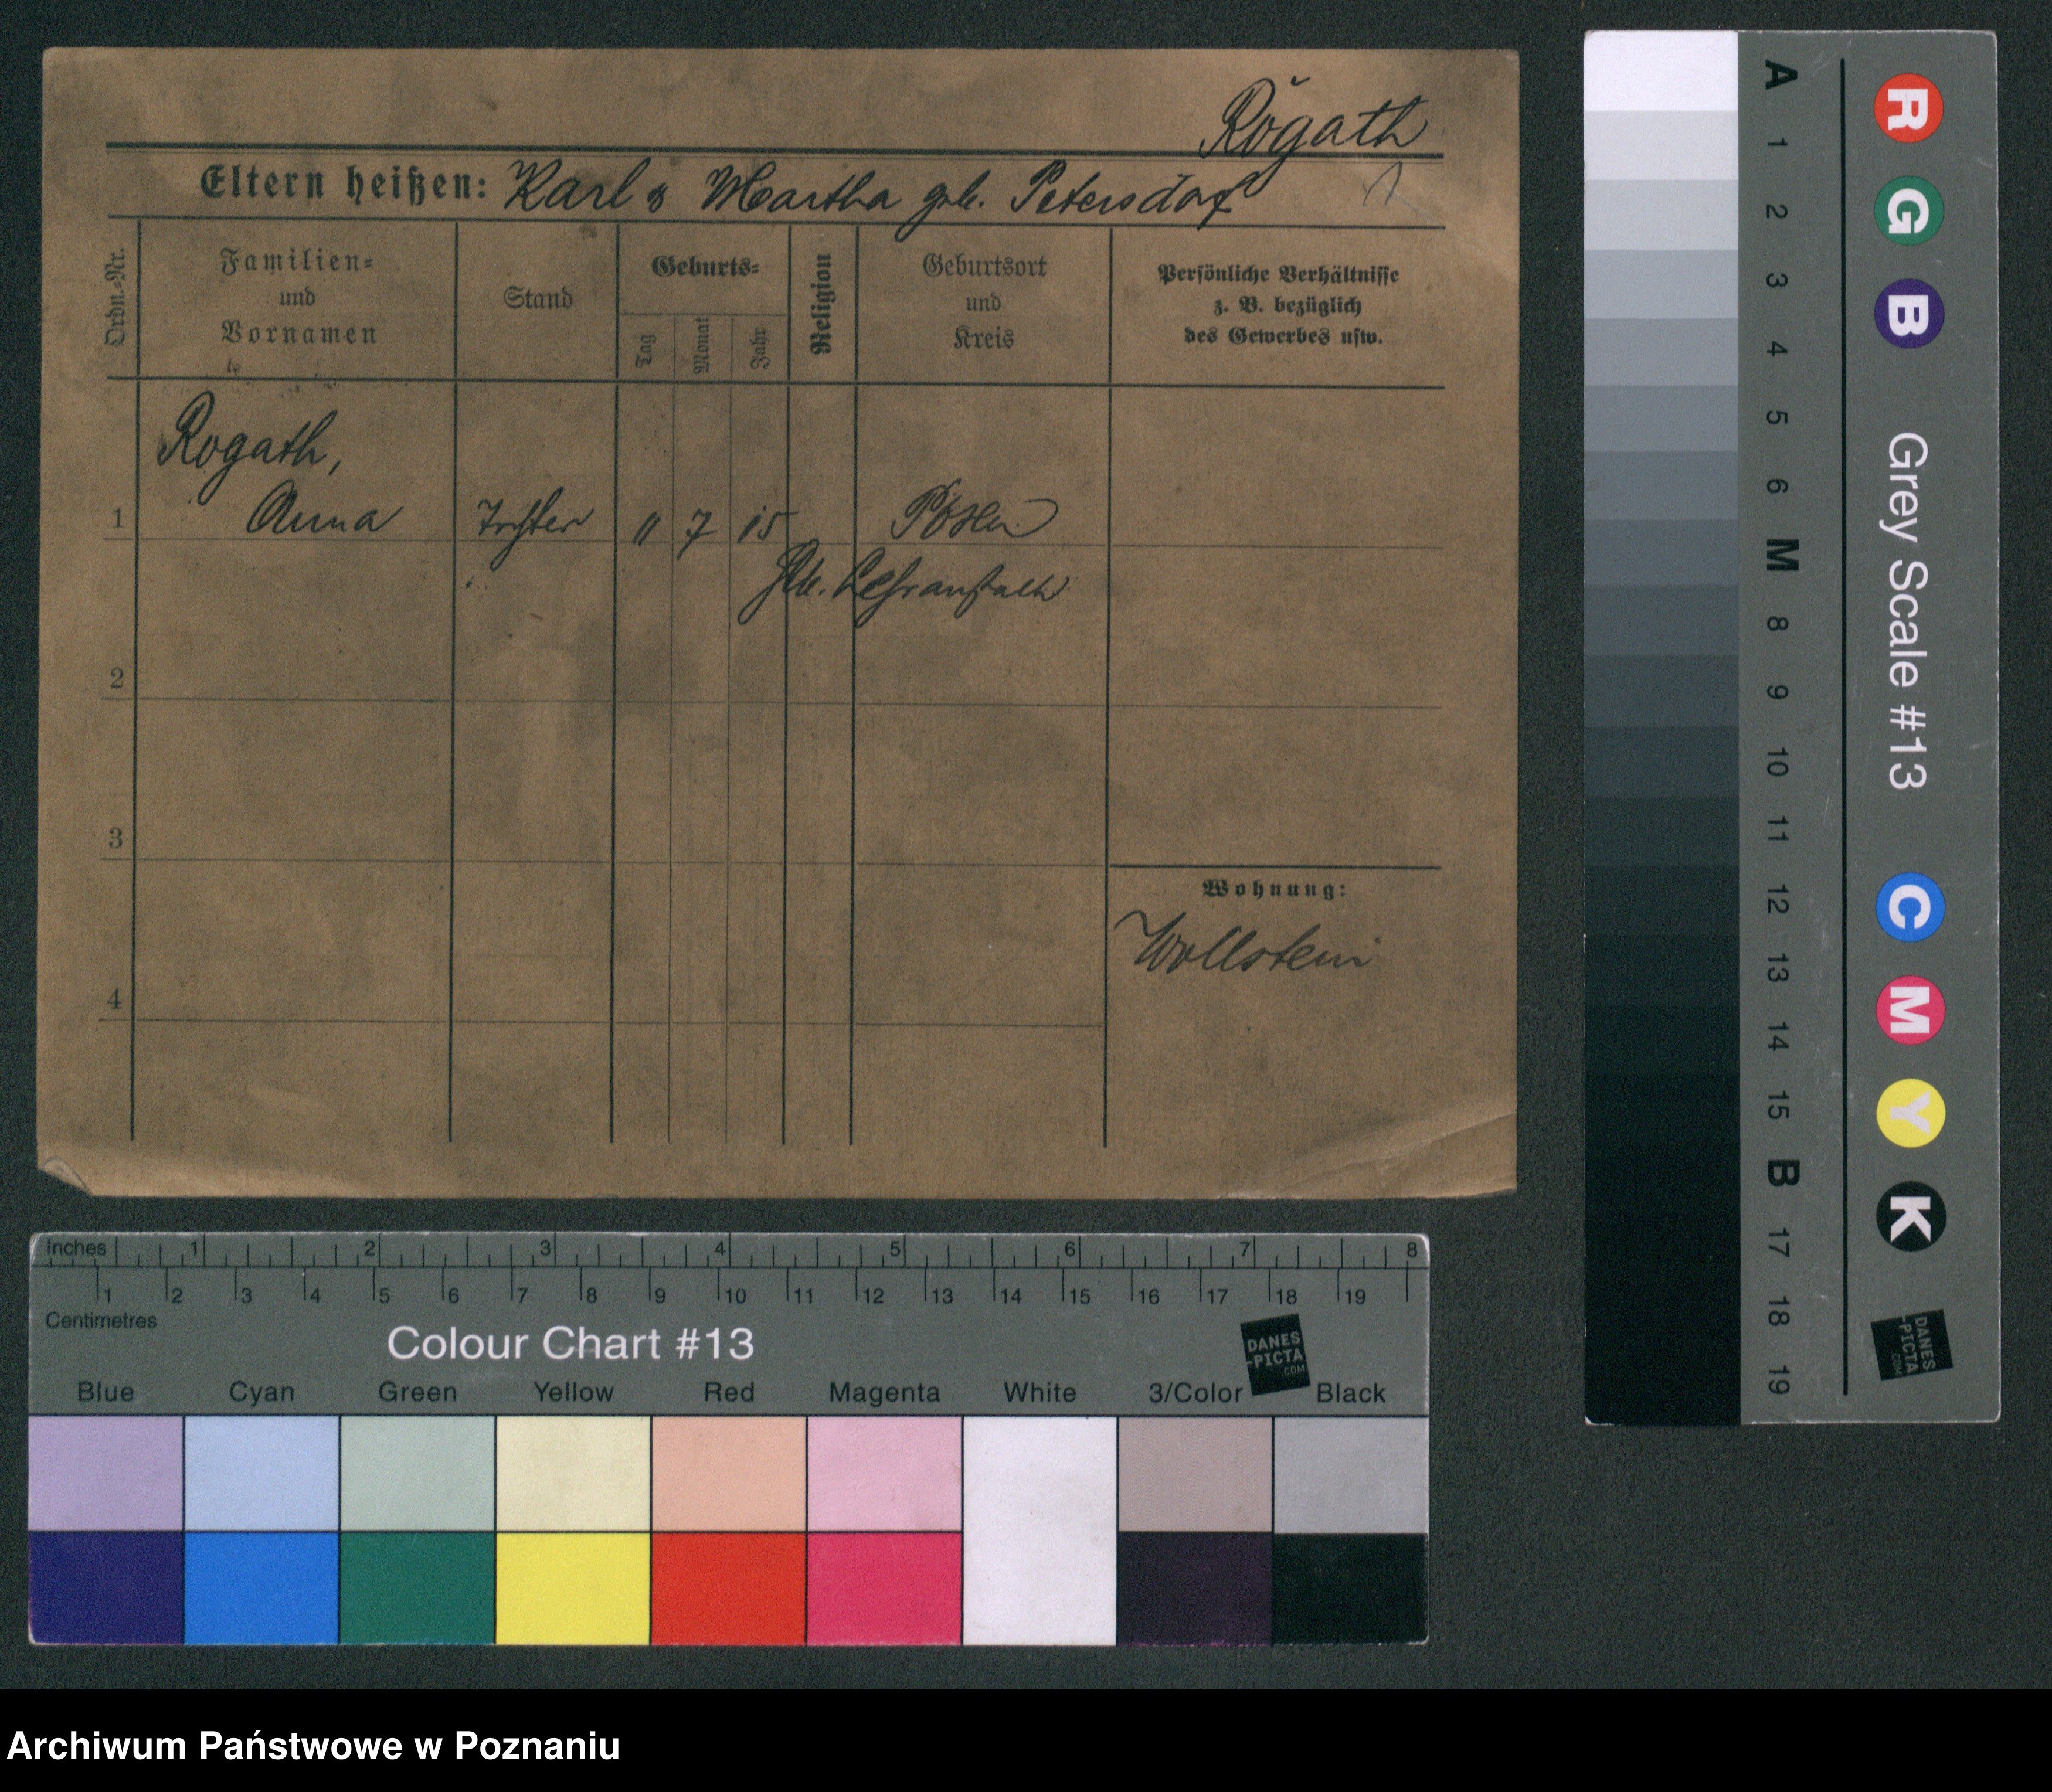 Rogath
Eltern heißen: Karl & Martha geb. Petersdorf
Ordn.-Nr.
Familien-
und
Vornamen
Stand
Geburts-
Tag
Monat
Jahr
Religion
Geburtsort
und
Kreis
Persönliche Verhältnisse
z. B. bezüglich
des Gewerbes usw.
Rogath,
1 Anna Tochter 11 7 15 Posen
Lehranstalt
2
3
4
Wohnung:
Wollstein
Inches 1 2 3 4 5 6 7 8
1 2 3 4 5 6 7 8 9 10 11 12 13 14 15 16 17 18 19
Centimetres
Colour Chart #13
DANES
-PICTA
.COM
Blue Cyan Green Yellow Red Magenta White 3/Color Black
A 1 2 3 4 5 6 M 8 9 10 11 12 13 14 15 B 17 18 19
R G B Grey Scale #13 C M Y K
DANES
-PICTA
.COM
Archiwum Państwowe w Poznaniu